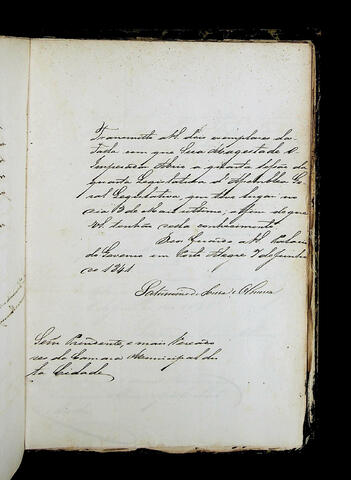 Transmitto a VSs. dois exemplares da
falla com que Sua Magestade o
Imperador abrio a quarta Sessão da
quarta Legislatura d'Assemblea Ge
ral Legislativa, que teve lugar no
dia 3 de Maio ultimo, afim de que
VSs. tenhão conhecimento
Deos Guarde a VSs. Palacio
do Governo em Porto Alegre 7 de Junho
de 1841
Saturnino de Souza e Oliveira
Snrs. Presidente, e mais Vereado
res da Camara Municipal des
ta Cidade